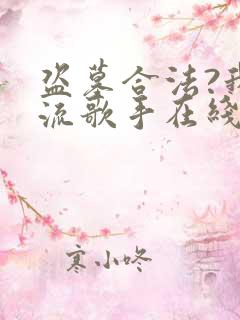 盗墓合法?我
流歌手在线
寒小咚